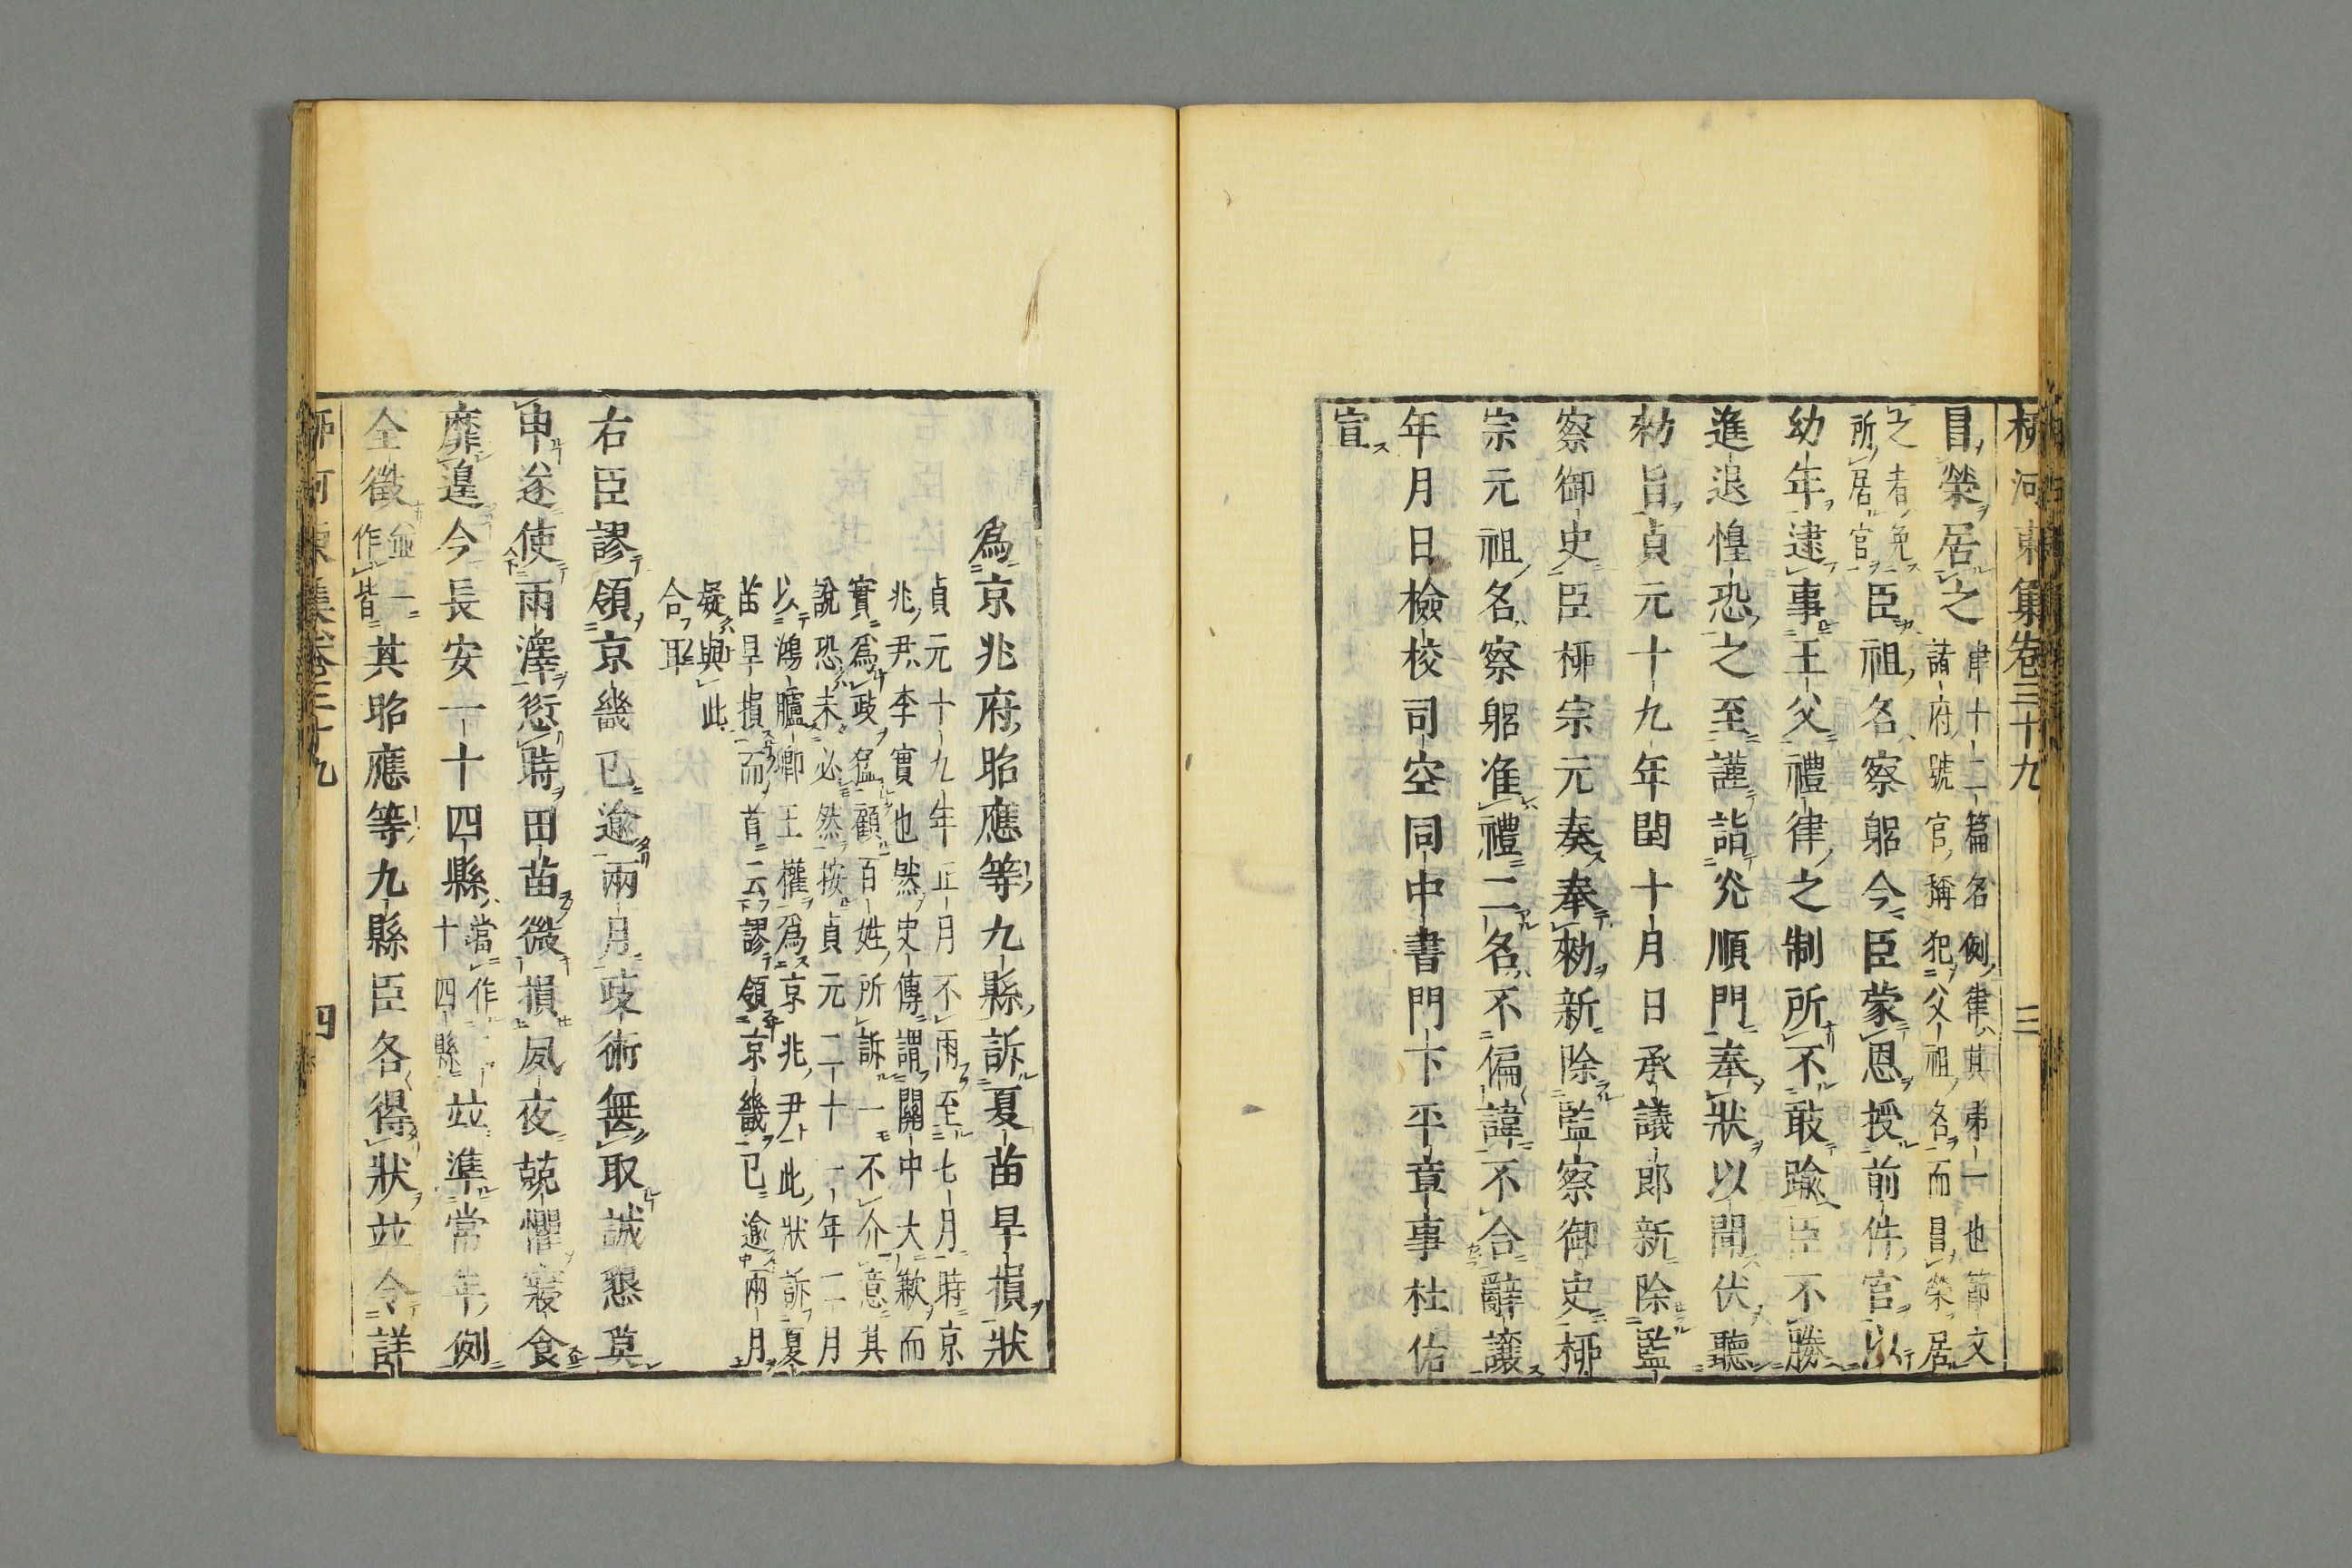 柳河東集卷三十九　三
冒榮居之律十二篇名例律其第一也節文
諸府號官稱犯父祖名而冒榮居
之者免
所居官臣祖名察躬今臣蒙恩授前件官以
幼年逮事王父禮律之制所不敢踰臣不勝
進退惶恐之至謹詣光順門奉狀以聞伏聽
勑旨貞元十九年閏十月日承議郎新除監
察御史臣柳宗元奏奉勑新除監察御史柳
宗元祖名察躬准禮二名不偏諱不合辭讓
年月日檢校司空同中書門下平章事杜佑
宣
爲京兆府昭應等九縣訴夏苗旱損狀
貞元十九年正月不雨至七月時京
兆尹李實也然史傳謂關中大歉而
實爲政猛顧百姓所訴一不介意其
說恐未必然按貞元二十一年二月
以鴻臚卿王權爲京兆尹此狀訴夏
苗旱損而首云謬領京畿已逾兩月
疑與此
合耶
右臣謬領京畿已逾兩月政術無取誠懇莫
申遂使雨澤愆時田苗微損夙夜兢懼寢食
靡遑今長安一十四縣當作二
十四縣並準常年例
全徵並一
作皆其昭應等九縣臣各得狀並令詳
柳河東集卷三十九　四